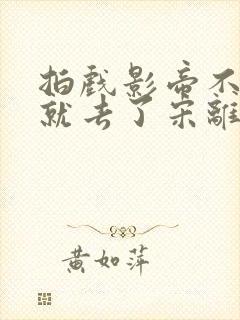 拍戏影帝不
就去了宋離
黄如萍